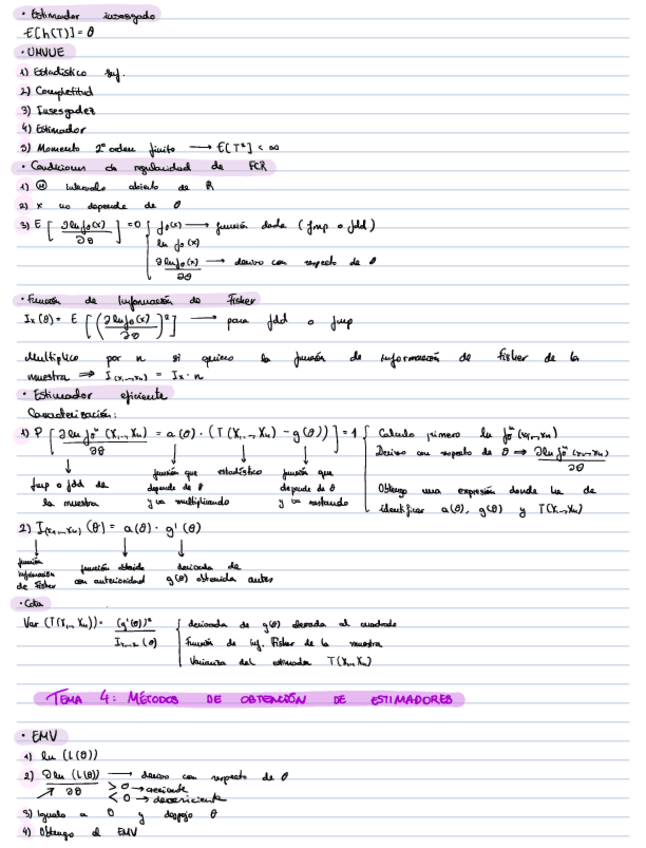 · Estimador insesgado
E[h(T)] = θ
· UMVUE
1) Estadístico suf.
2) Completitud
3) Insesgadez
4) Estimador
5) Momento 2º orden finito → E[T²] < ∞
· Condiciones de regularidad de FCR
1) Ⓗ intervalo abierto de R
2) X no depende de θ
3) E [ ∂ ln fθ(x) / ∂θ ] = 0 { fθ(x) → función dada (fmp o fdd)
ln fθ(x)
∂ ln fθ(x) / ∂θ → derivo con respecto de θ
· Función de Información de Fisher
Ix(θ) = E [ ( ∂ ln fθ(x) / ∂θ )² ] → para fdd o fmp
Multiplico por n si quiero la función de información de fisher de la
muestra ⇒ I(x1,...,xn) = Ix · n
· Estimador eficiente
Caracterización:
1) P [ ∂ ln fθⁿ (X1,..., Xn) / ∂θ = a(θ) · (T(X1,..., Xn) - g(θ)) ] = 1 { Calculo primero ln fθⁿ(x1,...,xn)
Derivo con respecto de θ ⇒ ∂ ln fθⁿ (x1,...,xn) / ∂θ
Obtengo una expresión donde he de
identificar a(θ), g(θ) y T(X1,...,Xn)
fmp o fdd de la muestra
función que depende de θ y va multiplicando
estadístico
función que depende de θ y va restando
2) I(x1,...,xn) (θ) = a(θ) · g'(θ)
función información de Fisher
función obtenida con anterioridad
derivada de g(θ) obtenida antes
· Cota
Var (T(X1,..., Xn)) = (g'(θ))² / Ix1,...,xn (θ) { derivada de g(θ) elevada al cuadrado
Función de inf. Fisher de la muestra
Varianza del estimador T(X1,...,Xn)
TEMA 4: MÉTODOS DE OBTENCIÓN DE ESTIMADORES
· EMV
1) ln (L(θ))
2) ∂ ln (L(θ)) / ∂θ → derivo con respecto de θ
> 0 → creciente
< 0 → decreciente
3) Igualo a 0 y despejo θ
4) Obtengo el EMV